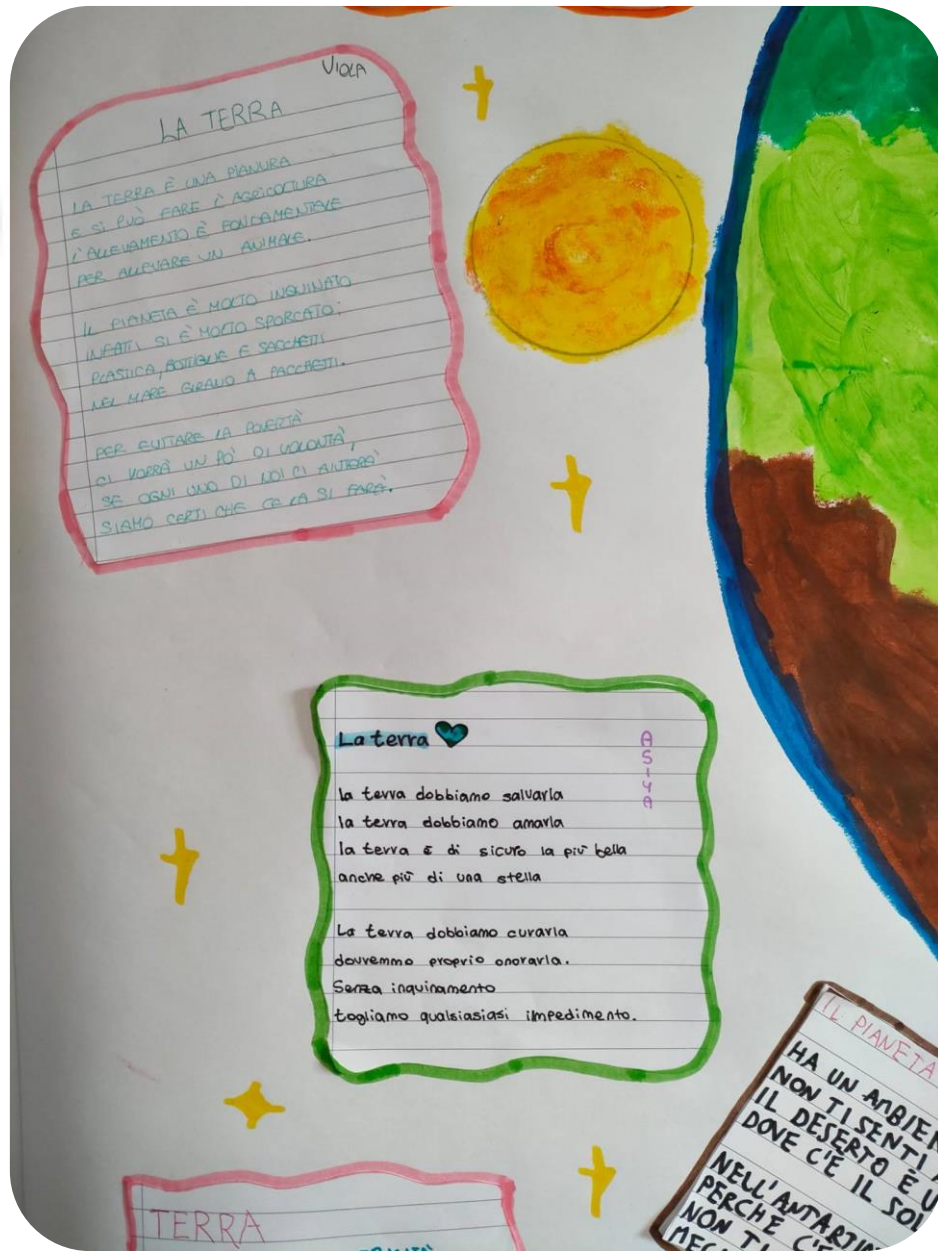 VIOLA
LA TERRA
LA TERRA È UNA PIANURA
E SI PUÒ FARE L'AGRICOLTURA
L'ALLEVAMENTO È FONDAMENTALE
PER ALLEVARE UN ANIMALE.
IL PIANETA È MOLTO INQUINATO
INFATTI SI È MOLTO SPORCATO;
PLASTICA, BOTTIGLIE E SACCHETTI
NEL MARE GIRANO A PACCHETTI.
PER EVITARE LA POVERTÀ
CI VORRÀ UN PO' DI VOLONTÀ,
SE OGNI UNO DI NOI CI AIUTERÀ
SIAMO CERTI CHE CE LA SI FARÀ.
La terra
ASIYA
la terra dobbiamo salvarla
la terra dobbiamo amarla
la terra è di sicuro la più bella
anche più di una stella
La terra dobbiamo curarla
dovremmo proprio onorarla.
Senza inquinamento
togliamo qualsiasiasi impedimento.
IL PIANETA
HA UN AMBIEN
NON TI SENTI A
IL DESERTO È U
DOVE C'È IL SOL
NELL'ANTARTI
PERCHÈ C'È
NON TI
TERRA